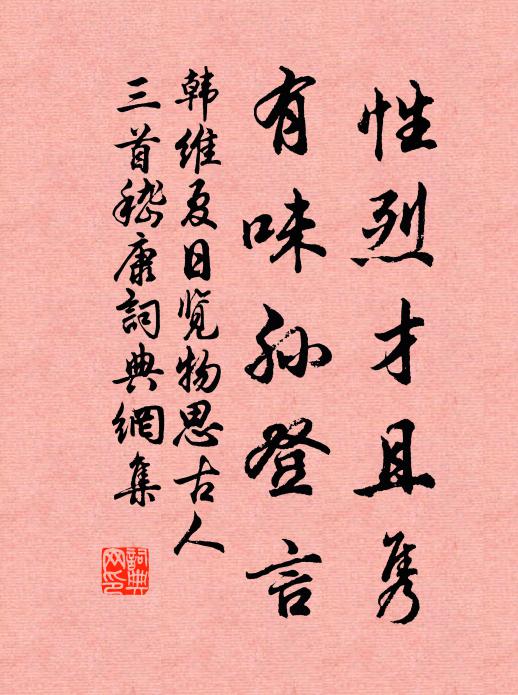 性烈才且隽
有味孙登言
韩维夏日览物思古人
三首嵇康詞典網集
詞典网印